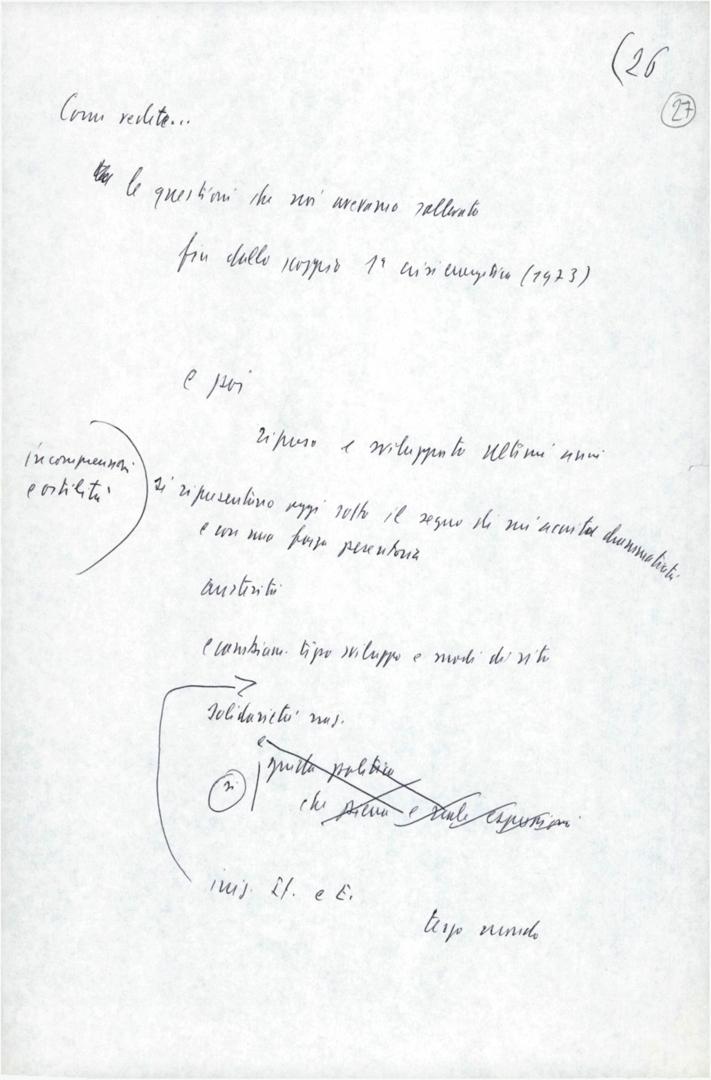 (26
27
Come vedete...
le questioni che noi avevamo sollevato
fin dallo scoppio 1ª crisi energetica (1973)
e poi
ripreso e sviluppato ultimi anni
incomprensioni
e ostilità
si ripresentano oggi sotto il segno di un'acuita drammaticità
e con una forza perentoria
austerità
e cambiam. tipo sviluppo e modi di vita
solidarietà naz.
e
guida politica
si
che piena e reale espressione
iniz. It. e E.
terzo mondo